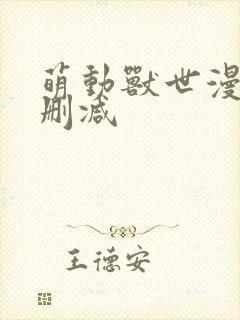 萌動獸世漫
刪減
王德安